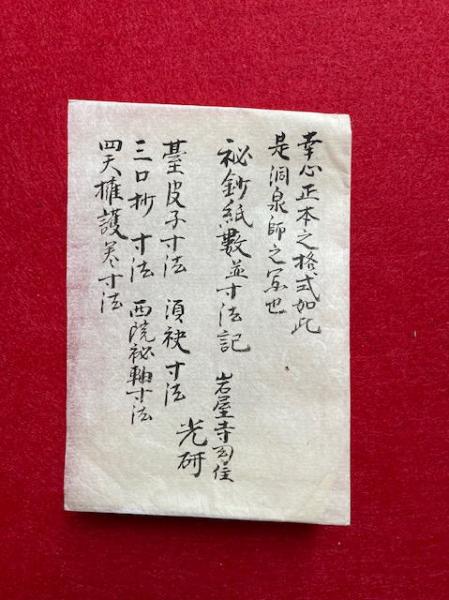 幸心正本之格式如此
是洞泉師之也
祕鈔紙數並寸法記
岩屋寺住
光研
臺皮子寸法 須寸法
三口抄寸法 西院祕軸寸法
四天擁護寸法